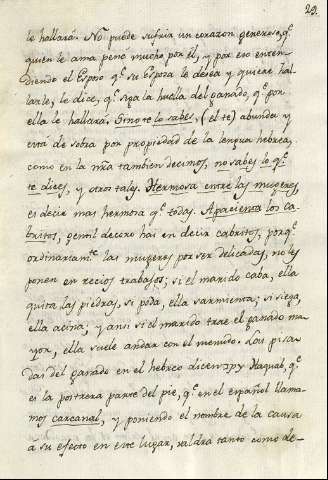 29.
le hallará. No puede sufrir un corazon generoso, q.^e
quien le ama pene mucho por él, y por eso enten-
diendo el Esposo q.^e su Esposa le desea y quiere ha-
llarle, le dice, q.^e siga la huella del ganado, q.^e por
ella le hallará. Si no te lo sabes, (el te) abunda y
está de sobra por propiedad de la lengua hebrea,
como en la nřa tambien decimos, no sabes lo q.^e
te dices, y otros tales. Hermosa entre las mugeres,
es decir mas hermosa q.^e todas. Apacienta los ca-
britos, gentil decoro hai en decir cabritos, porq.^e
ordinariam.^te las mugeres por ser delicadas, no les
ponen en recios trabajos; si el marido caba, ella
quita las piedras, si poda, ella sarmienta; si siega,
ella acina; y ansi si el marido trae el ganado ma-
yor, ella suele andar con el menudo. Las pisa-
das del ganado en el hebreo dice עקב Haquab, q.^e
es la postrera parte del pie, q.^e en el español llama-
mos carcañal, y poniendo el nombre de la causa
á su efecto en este lugar, valdrá tanto como de-